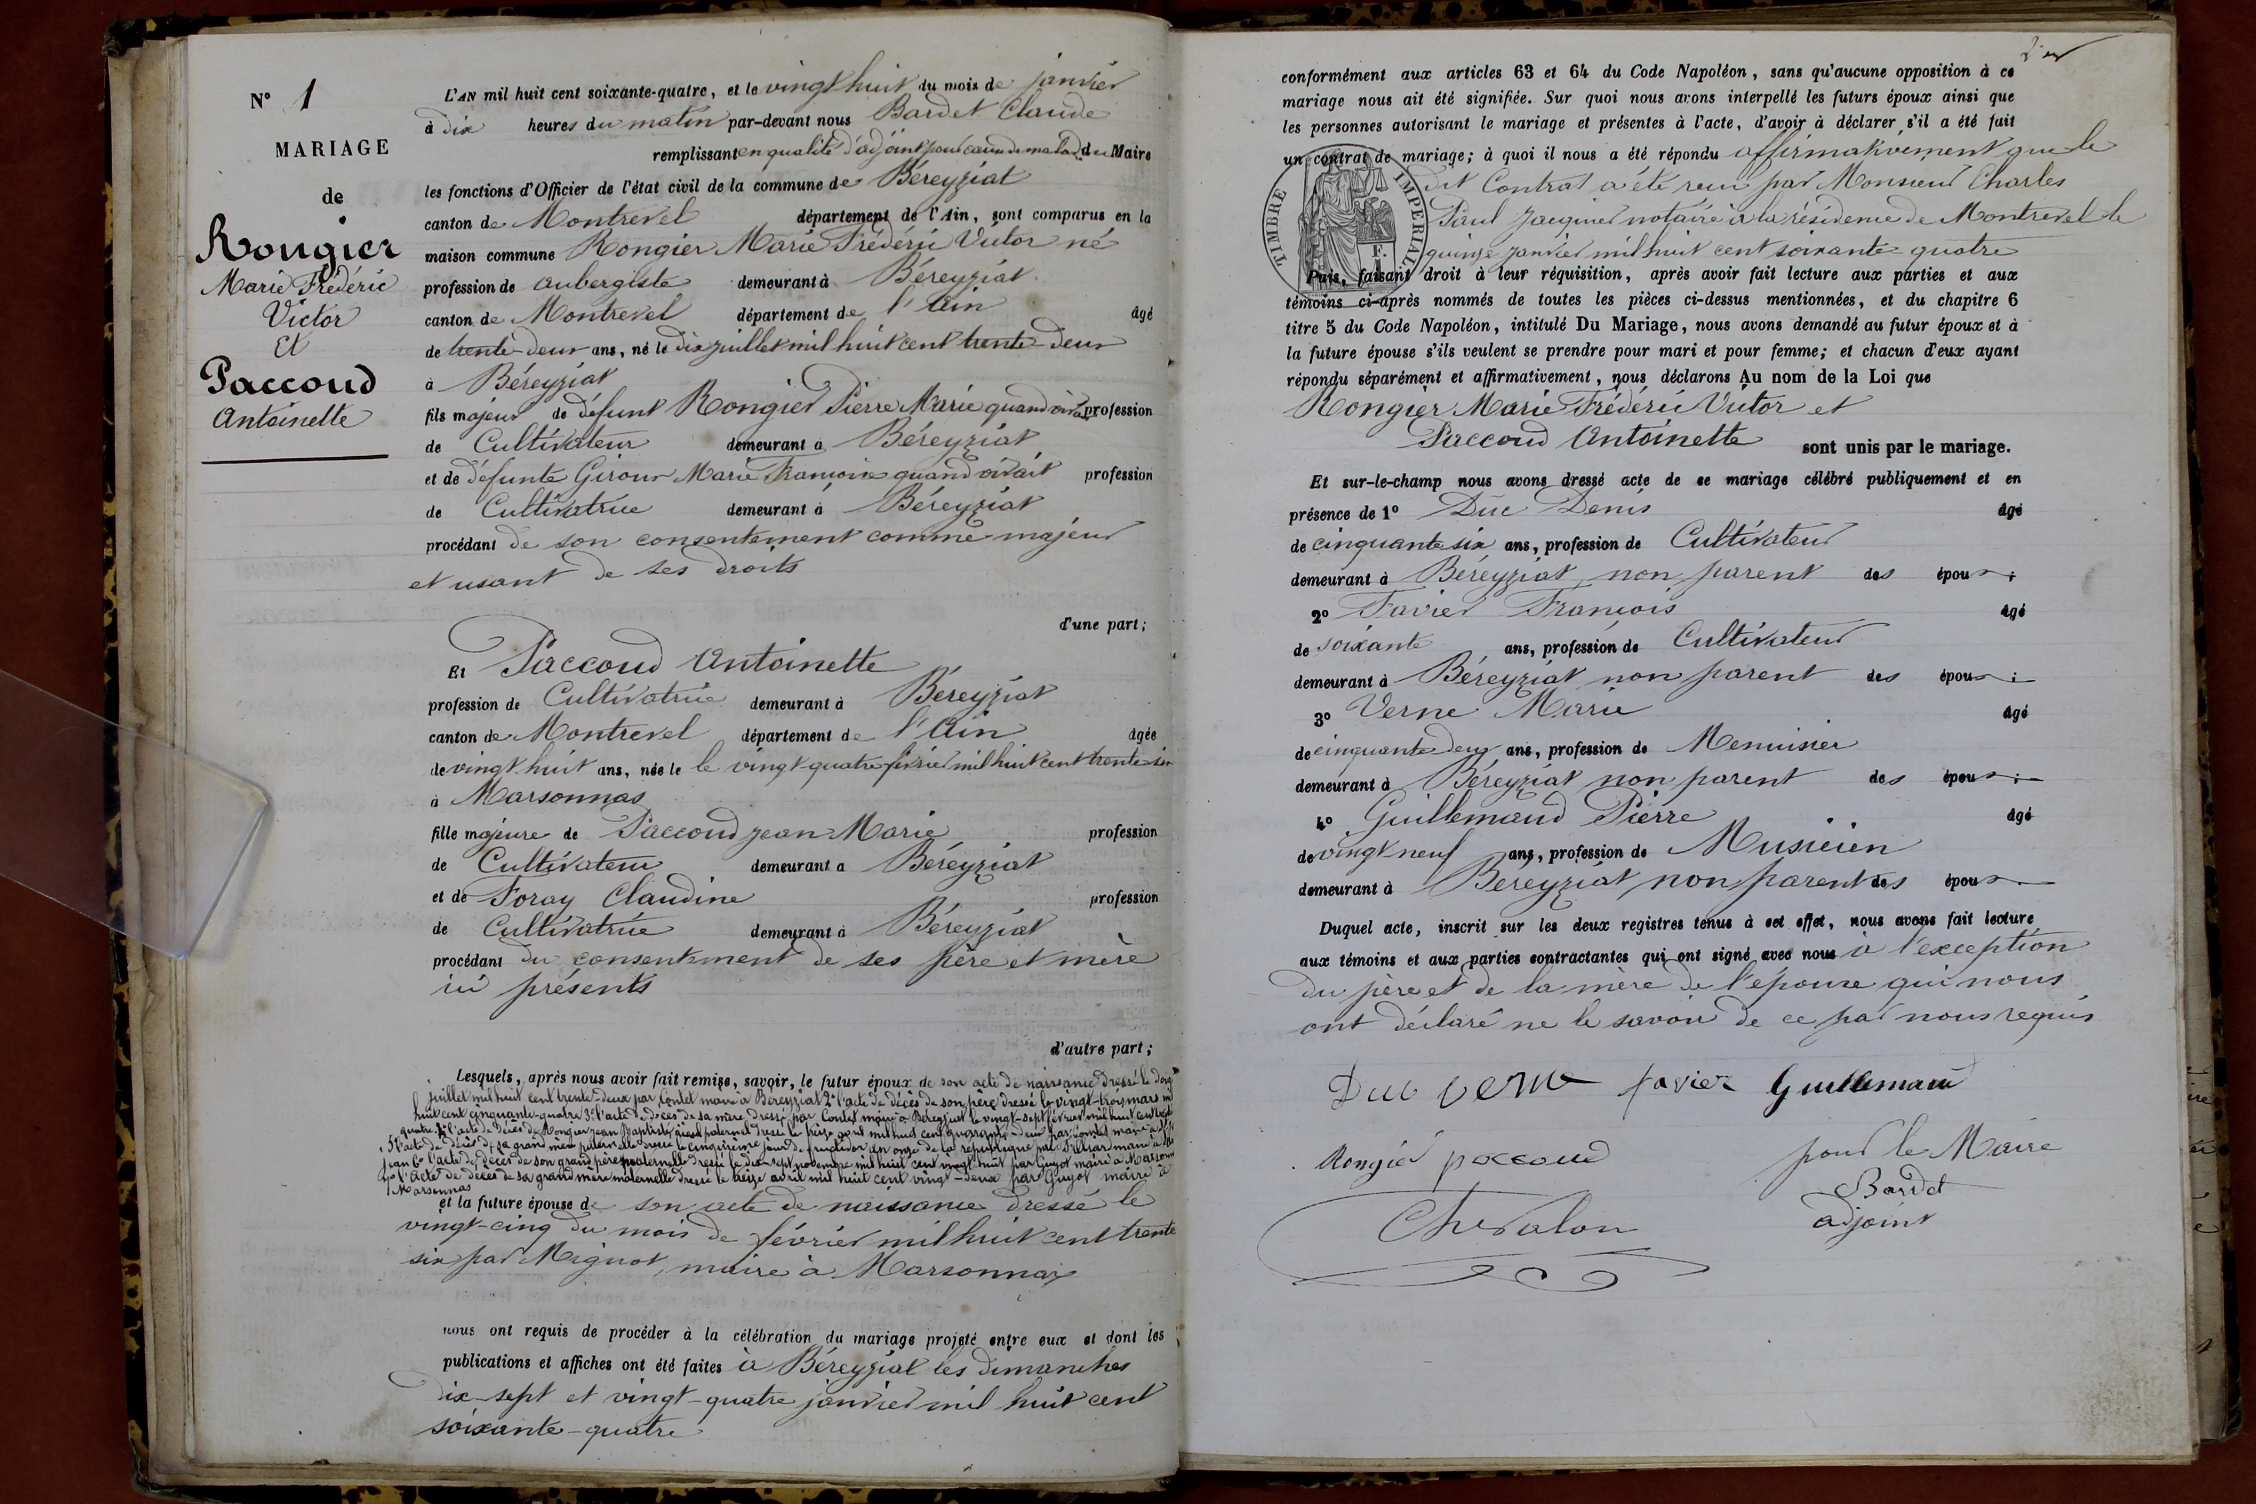 N° 1
MARIAGE
de
Rongier
Marie Frédéric
Victor
Et
Paccoud
Antoinette
L'AN mil huit cent soixante-quatre, et le vingt huit du mois de janvier
à dix heures du matin par-devant nous Bardet Claude
remplissant en qualité d'adjoint pour cause de malad. du Maire
les fonctions d'Officier de l'état civil de la commune de Béreyziat
canton de Montrevel département de l'Ain, sont comparus en la
maison commune Rongier Marie Frédéric Victor né
profession de aubergiste demeurant à Béreyziat
canton de Montrevel département de l'Ain âgé
de trente-deux ans, né le dix juillet mil huit cent trente-deux
à Béreyziat
fils majeur de défunt Rongier Pierre Marie quand vivait profession
de Cultivateur demeurant à Béreyziat
et de défunte Giroux Marie Françoise quand vivait profession
de Cultivatrice demeurant à Béreyziat
procédant de son consentement comme majeur
et usant de ses droits
d'une part;
Et Paccoud Antoinette
profession de Cultivatrice demeurant à Béreyziat
canton de Montrevel département de l'Ain âgée
de vingt huit ans, née le le vingt-quatre février mil huit cent trente-six
à Marsonnas
fille majeure de Paccoud Jean-Marie profession
de Cultivateur demeurant a Béreyziat
et de Foray Claudine profession
de Cultivatrice demeurant à Béreyziat
procédant du consentement de ses père et mère
ici présents
d'autre part;
Lesquels, après nous avoir fait remise, savoir, le futur époux de son acte de naissance dressé le
juillet mil huit cent trente-deux par Contet maire à Béreyziat 2° l'acte de décès de son père dressé le vingt-trois mars mil
huit cent cinquante-quatre 3° l'acte de décès de sa mère dressé par Contet maire à Béreyziat le vingt-sept février mil huit cent
quatre 4° l'acte de décès de Rongier Jean Baptiste aïeul paternel dressé le treize avril mil huit cent quarante-deux par Contet maire à
5° l'acte de décès de sa grand mère paternelle dressé le cinquième jour de fructidor an onze de la république par maire à
Jean 6° l'acte de décès de son grand père maternelle dressé le dix-sept novembre mil huit cent vingt-huit par Guyot maire à Marsonnas
7° l'acte de décès de sa grand mère maternelle dressé le treize avril mil huit cent vingt-deux par Guyot maire à
Marsonnas
et la future épouse de son acte de naissance dressé le
vingt-cinq du mois de février mil huit cent trente
six par Mignot, maire à Marsonnas
nous ont requis de procéder à la célébration du mariage projeté entre eux et dont les
publications et affiches ont été faites à Béreyziat les dimanches
dix-sept et vingt-quatre janvier mil huit cent
soixante-quatre
conformément aux articles 63 et 64 du Code Napoléon, sans qu'aucune opposition à ce
mariage nous ait été signifiée. Sur quoi nous avons interpellé les futurs époux ainsi que
les personnes autorisant le mariage et présentes à l'acte, d'avoir à déclarer s'il a été fait
un contrat de mariage; à quoi il nous a été répondu affirmativement que le
dit Contrat a été reçu par Monsieur Charles
Paul Jacquier notaire à la résidence de Montrevel le
quinze janvier mil huit cent soixante-quatre
TIMBRE IMPERIAL
1 F.
Puis, faisant droit à leur réquisition, après avoir fait lecture aux parties et aux
témoins ci-après nommés de toutes les pièces ci-dessus mentionnées, et du chapitre 6
titre 5 du Code Napoléon, intitulé Du Mariage, nous avons demandé au futur époux et à
la future épouse s'ils veulent se prendre pour mari et pour femme; et chacun d'eux ayant
répondu séparément et affirmativement, nous déclarons Au nom de la Loi que
Rongier Marie Frédéric Victor et
Paccoud Antoinette sont unis par le mariage.
Et sur-le-champ nous avons dressé acte de ce mariage célébré publiquement et en
présence de 1° Duc Denis âgé
de cinquante six ans, profession de Cultivateur
demeurant à Béreyziat, non parent des époux;
2° Favier François âgé
de soixante ans, profession de Cultivateur
demeurant à Béreyziat non parent des époux;
3° Verne Marie âgé
de cinquante deux ans, profession de Menuisier
demeurant à Béreyziat non parent des époux;
4° Guillemaud Pierre âgé
de vingt neuf ans, profession de Musicien
demeurant à Béreyziat, non parent des époux
Duquel acte, inscrit sur les deux registres tenus à cet effet, nous avons fait lecture
aux témoins et aux parties contractantes qui ont signé avec nous à l'exception
du père et de la mère de l'épouse qui nous
ont déclaré ne le savoir de ce par nous requis
Duc verne favier Guillemaud
Rongier paccoud pour le Maire
Bardet
Chevalon adjoint